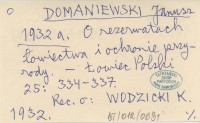 DOMANIEWSKI Janusz
1932 a. O rezerwatach
łowiectwa i ochronie przy-
rody. — Łowiec Polski
25: 334-337.
Rec. o: WODZICKI K.
1932.